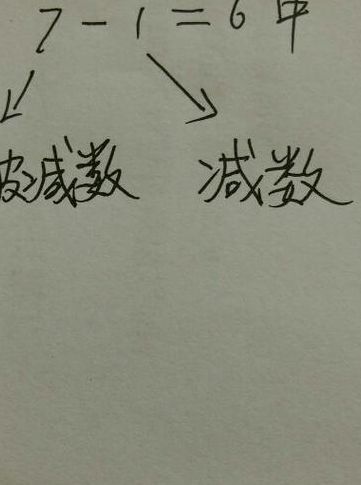 7 - 1 = 6 中
被减数 减数